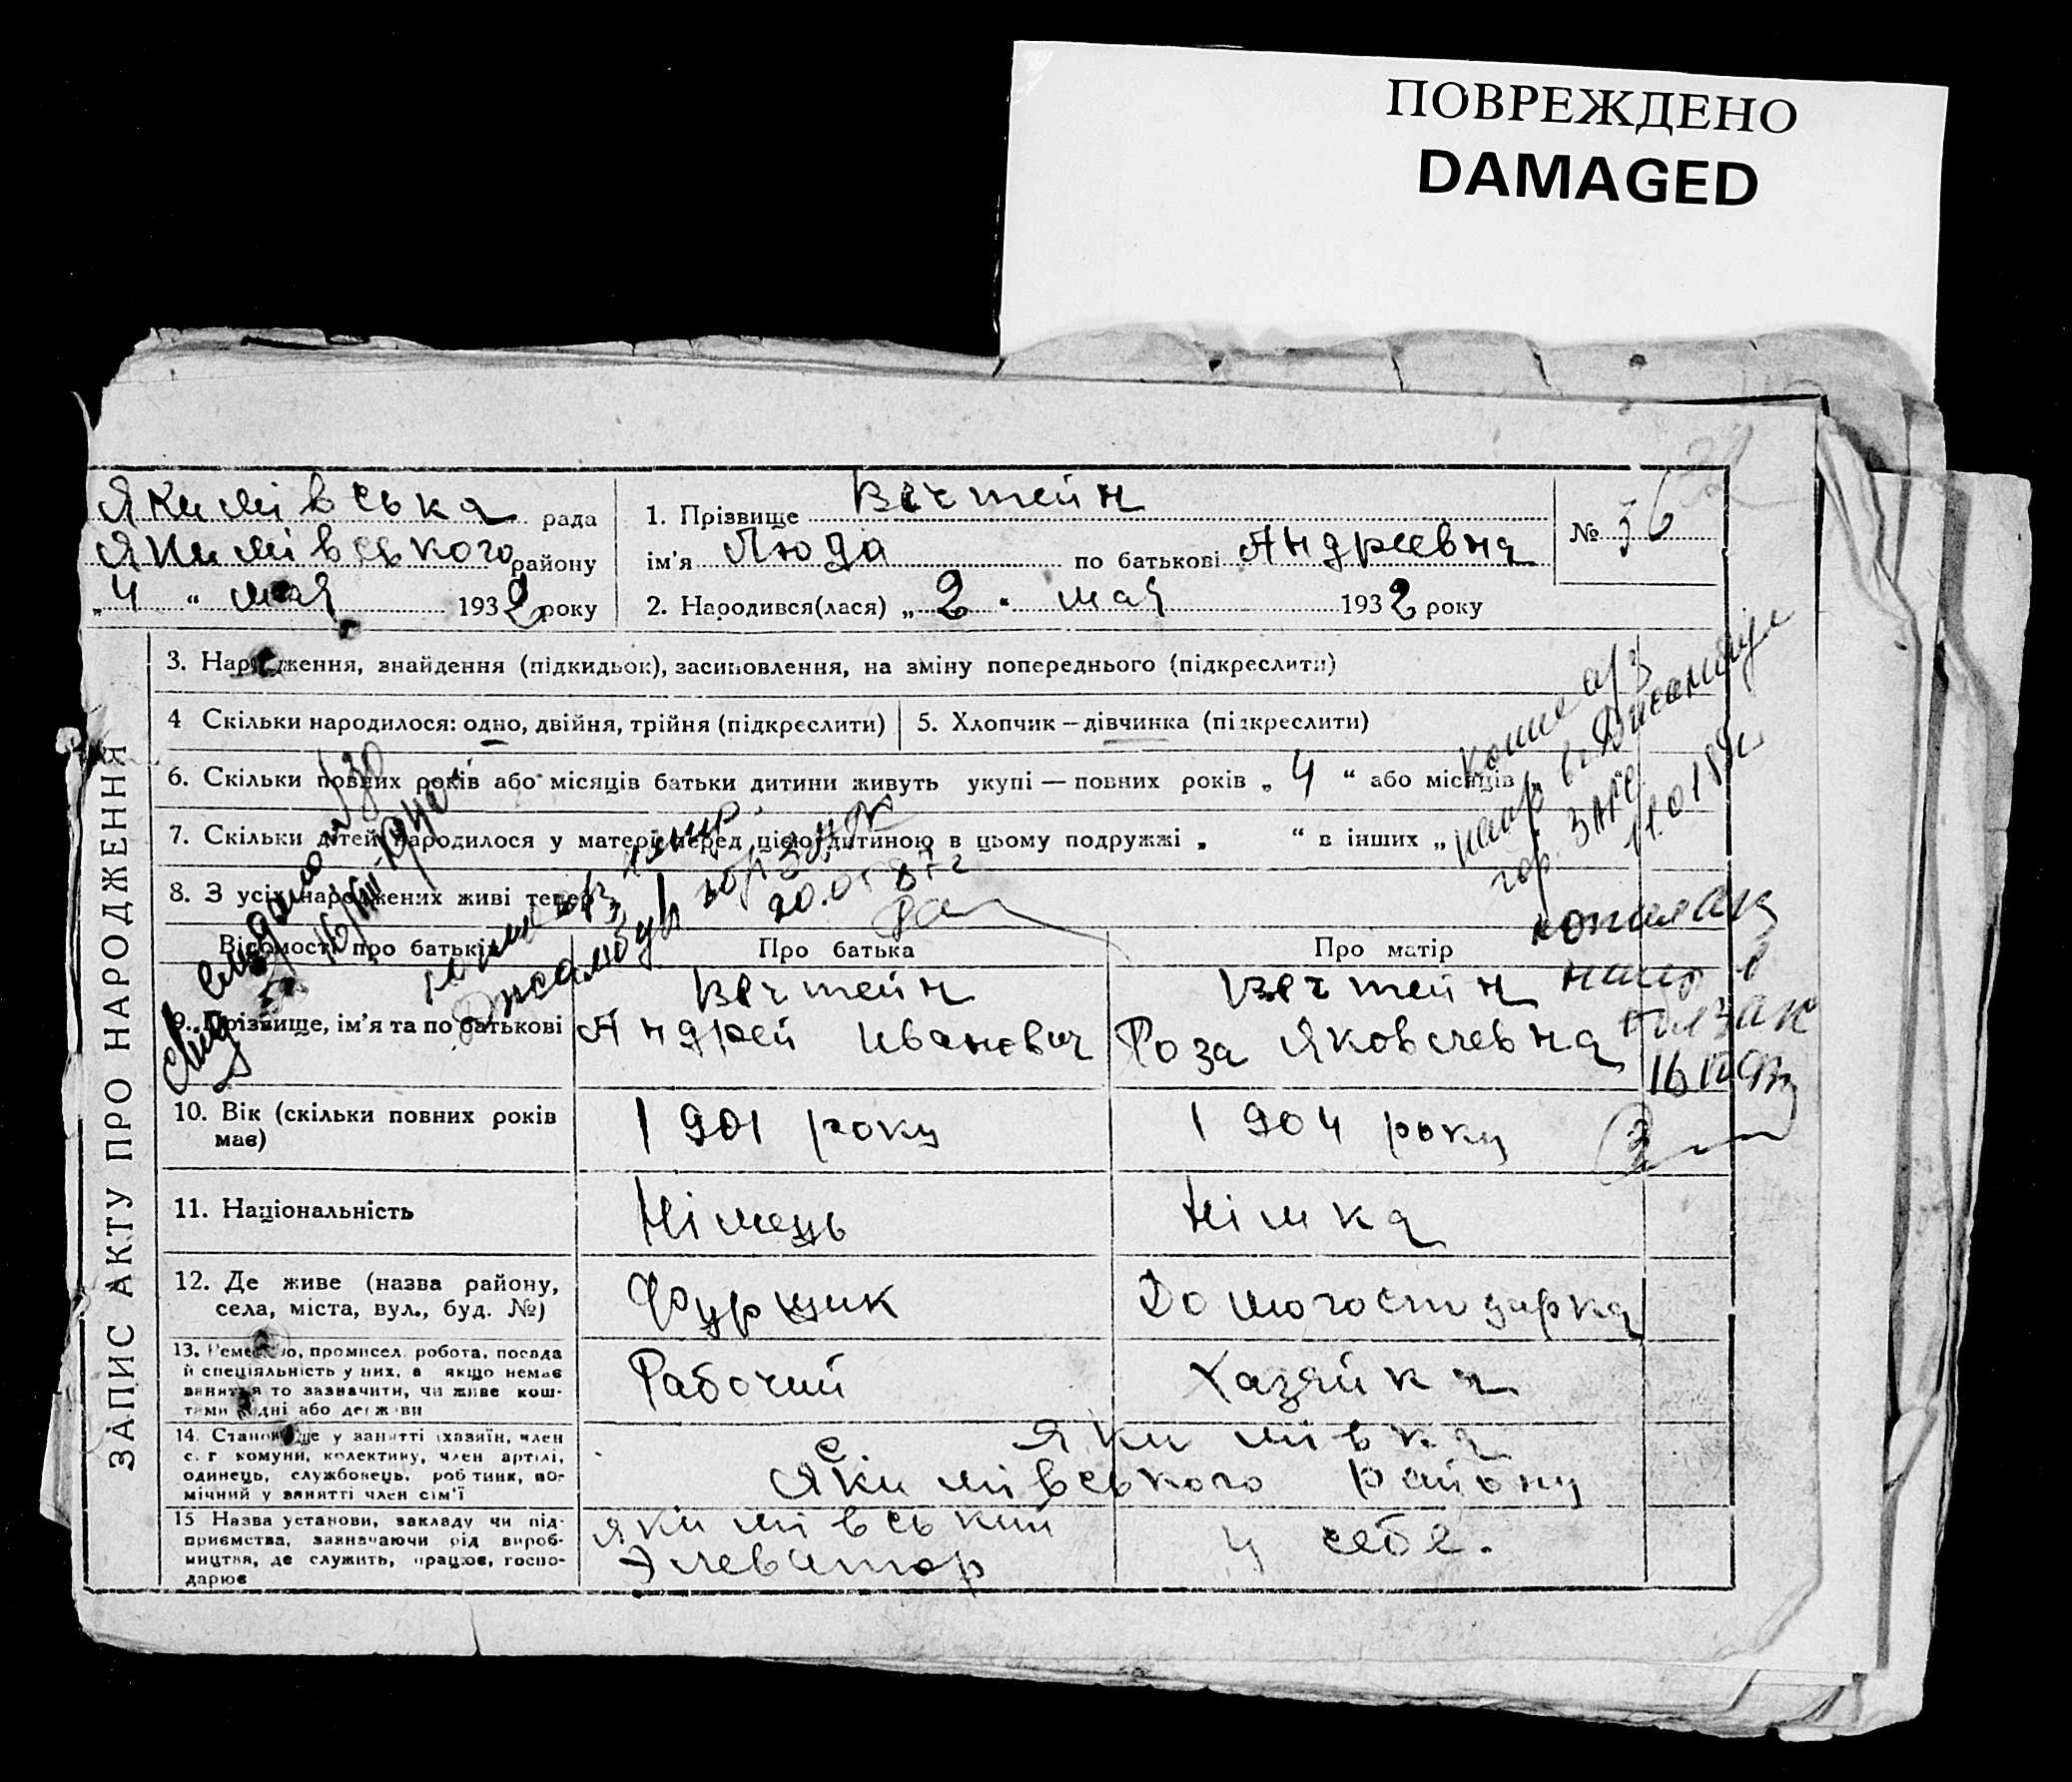 ПОВРЕЖДЕНО
DAMAGED
Якимівська рада
Якимівського району
„ 4 “ мая 1932 року
1. Прізвище Вечтейн
ім'я Люда по батькові Андреевна
№ 36
2. Народився(лася) „ 2 “ мая 1932 року
ЗАПИС АКТУ ПРО НАРОДЖЕННЯ
3. Народження, знайдення (підкидьок), засиновлення, на зміну попереднього (підкреслити)
4 Скільки народилося: одно, двійня, трійня (підкреслити)
5. Хлопчик — дівчинка (підкреслити)
6. Скільки повних років або місяців батьки дитини живуть укупі — повних років „ 4 “ або місяців
7. Скільки дітей народилося у матері перед цією дитиною в цьому подружжі „ “ в інших „
8. З усіх народжених живі тепер
20.05 87г
Відомості про батьків
Про батька
Про матір
9. Прізвище, ім'я та по батькові
Вечтейн
Андрей Иванович
Вечтейн
Роза Яковлевна
10. Вік (скільки повних років має)
1901 року
1904 року
11. Національність
Німець
Німка
12. Де живе (назва району, села, міста, вул., буд. №)
Фурщик
Домогосподарка
13. Ремество, промисел, робота, посада
й спеціяльність у них, а якщо немає
заняття то зазначити, чи живе кош-
тами рідні або держави
Рабочий
Хазяйка
14. Становище у занятті (хазяїн, член
с. г комуни, колективу, член артілі,
одинець, службовець, робітник, по-
мічний у занятті член сім'ї
с. Якимівка
Якимівського району
15 Назва установи, закладу чи під-
приємства, зазначаючи рід вироб-
ництва, де служить, працює, госпо-
дарює
Якимівський
Элеватор
у себе.